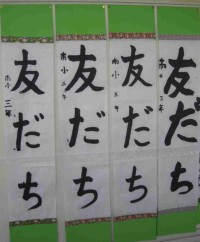 友だち
南小三年
友だち
南小三年
友だち
南小三年
友だち
三年